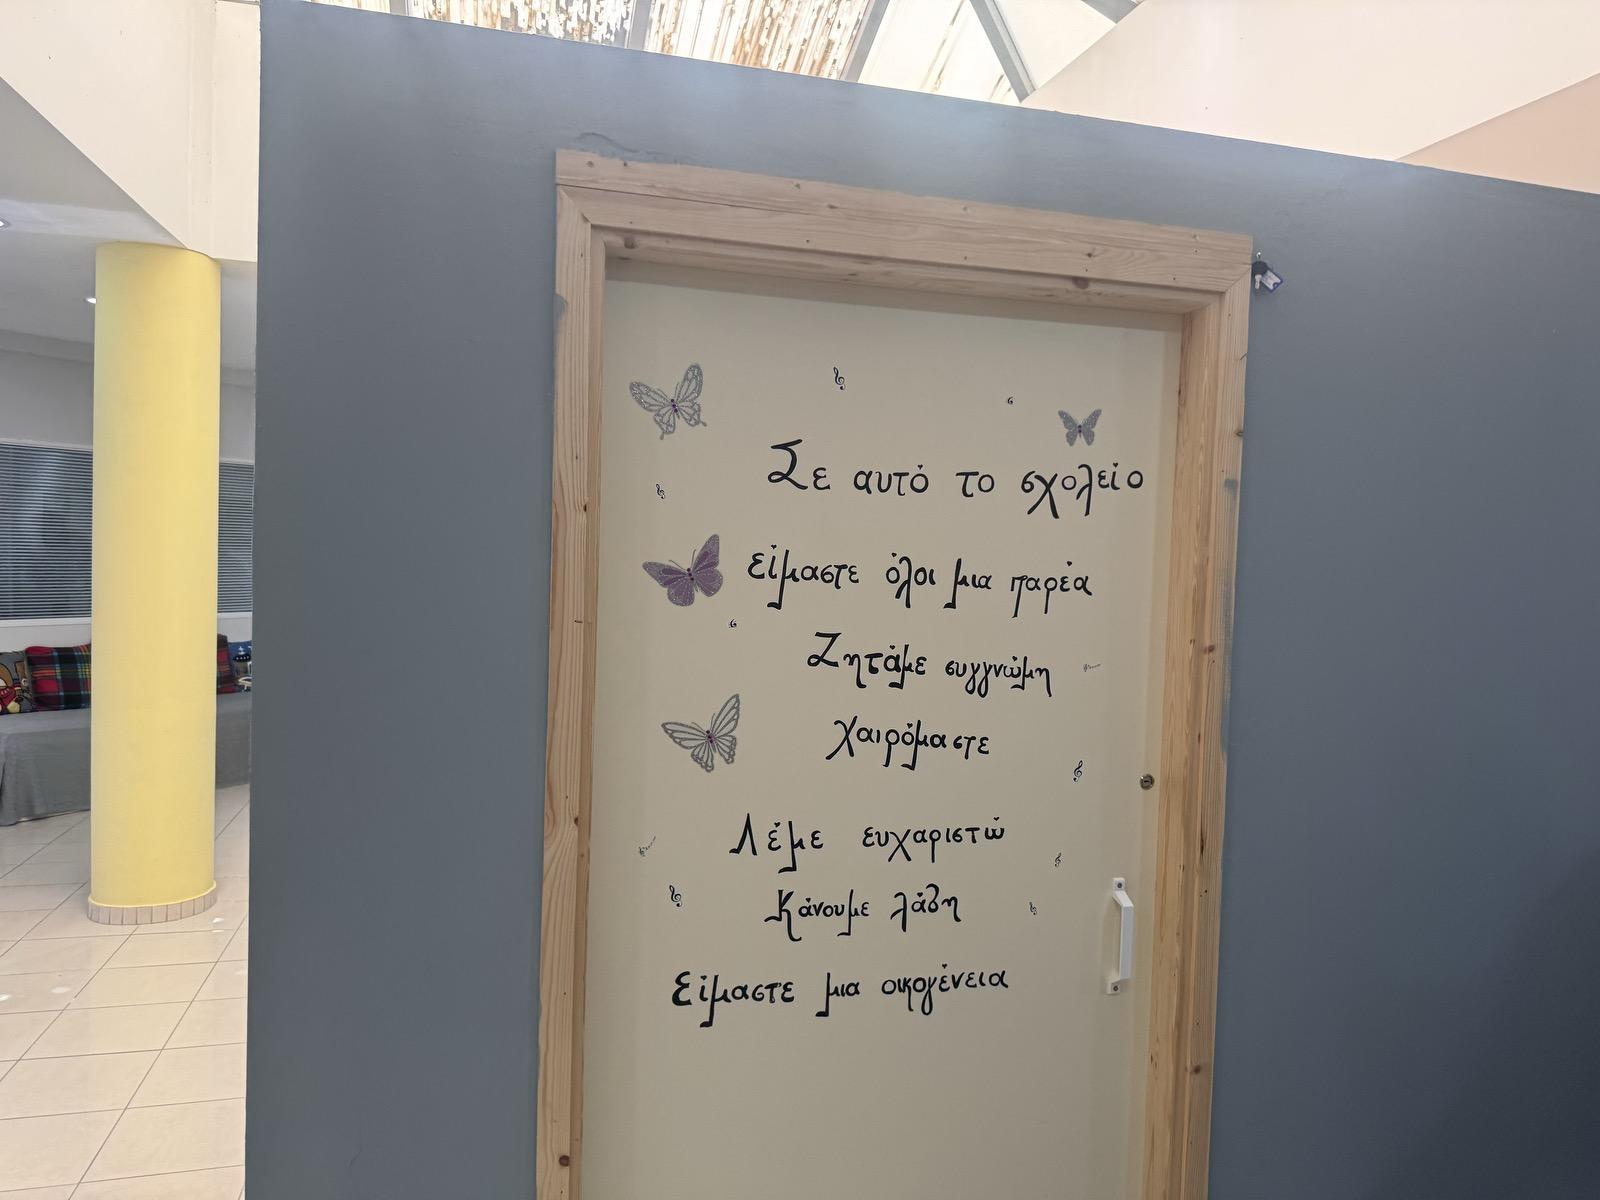 Σε αυτό το σχολείο
είμαστε όλοι μια παρέα
Ζητάμε συγγνώμη
Χαιρόμαστε
Λέμε ευχαριστώ
Κάνουμε λάθη
Είμαστε μια οικογένεια